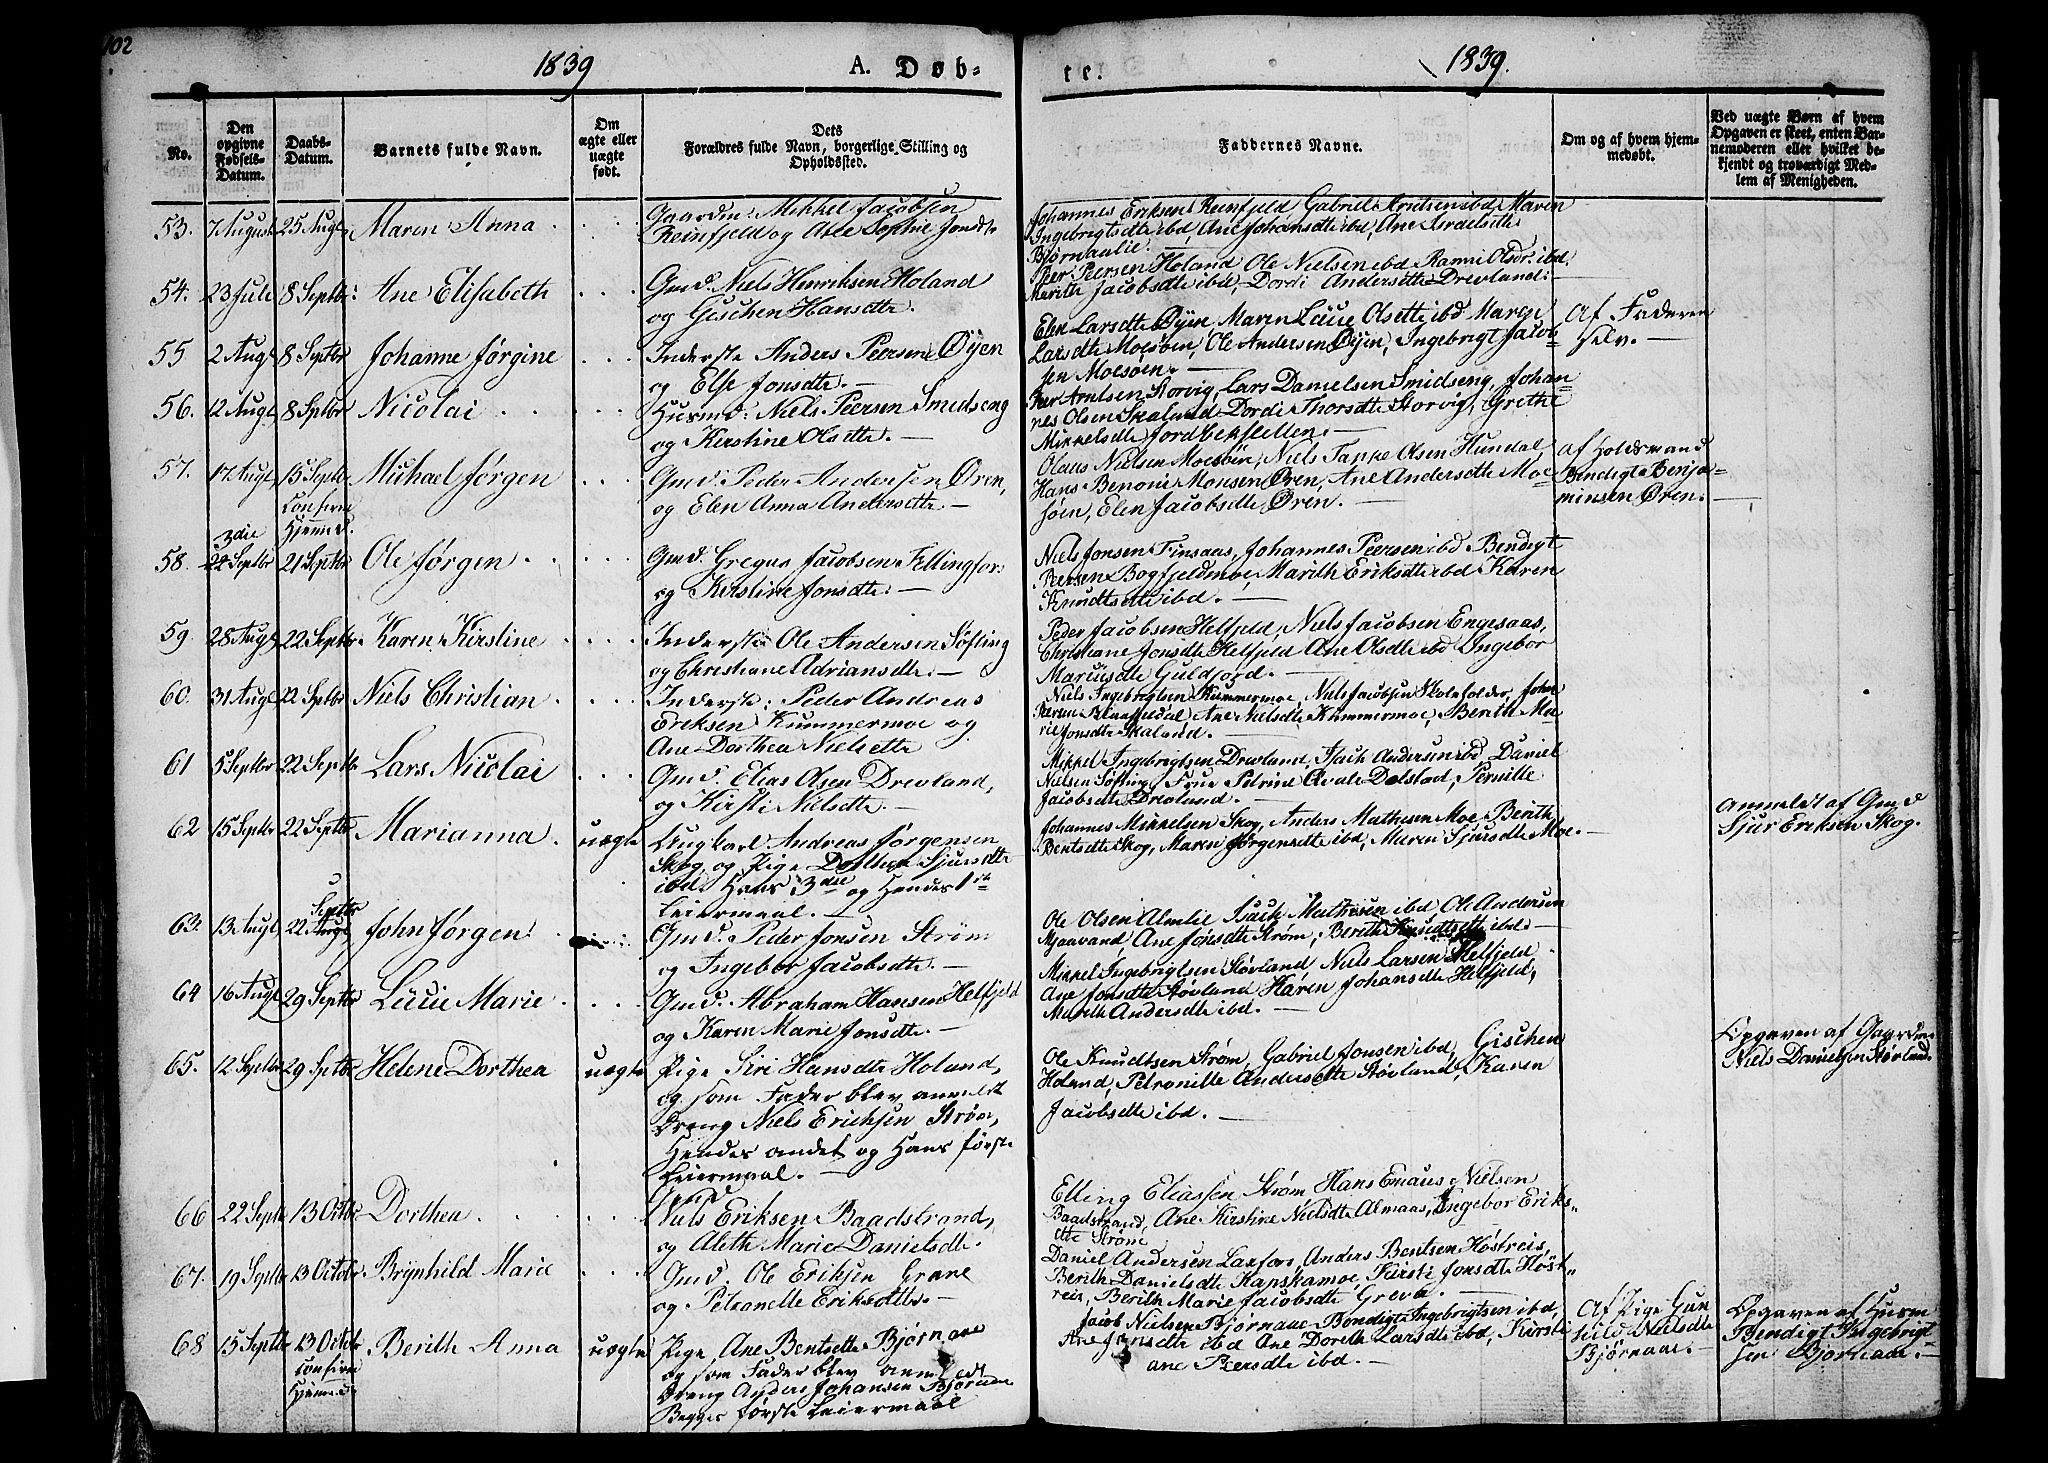 102
1839
A. Døb-
te.
1839.
No.
Den opgivne Fødsels-Datum.
Daabs-Datum.
Barnets fulde Navn.
Om ægte eller uægte født.
Dets Forældres fulde Navn, borgerlige Stilling og Opholdssted.
Faddernes Navne.
Om og af hvem hjem-
medøbt.
Ved uægte Børn af hvem
Opgaven er skeet, enten Bar-
nemoderen eller hvilket be-
kjendt og troværdigt Med-
lem af Menigheden.
53. 7 August 25 Augt Maren Anna
Gaardm: Mikkel Jacobsen
Reinfjeld og Ane Sophie Jonsdte
Johannes Eriksen Reinfjeld Gabriel Arntsen ibd Maren
Ingebrigtsdte ibd, Ane Johansdte ibd, Ane Israelsdte
Bjørnaalie.
54. 23 Juli 8 Septbr: Ane Elisabeth
Gmd. Niels Henriksen Holand
og Gischen Hansdte.
Peer Peersen Holand Ole Nielsen ibd Ranni Olsdr. ibd.
Marith Jacobsdte ibd, Dordi Andersdtte Drevland.
55 2 Augt 8 Septbr Johanne Jørgine
Inderste Anders Peersen Øÿen
og Else Jonsdte.
Elen Larsdte Øÿen, Maren Lucie Olsdtte ibd Maren
Larsdte Moesøen, Ole Andersen Øÿen, Ingebrigt Jacob-
sen Moesøen.
Af Faderen
selv.
56. 12 Augt 8 Sptbr Nicolai
Huusmd: Niels Peersen Smedseng
og Kirstine Olsdtte.
Peer Arntsen Storvig, Lars Danielsen Smidseng, Johan-
nes Olsen Skaland Dordi Thorsdte Storvig, Grethe
Mikkelsdte Jordbekstellen.
57. 17 Augt 15 Septbr Michael Jørgen
confirm
Hjemmed.
Gmd. Peder Andersen Øren,
og Elen Anna Andersdtte.
Olaus Nielsen Moesøen, Niels Tappe Olsen Hundal,
Hans Benoni Monsen Øren, Ane Andersdte Moe-
søen, Elen Jacobsdte Øren.
af Holdsmand
Bendigt Benja-
minsen Øren.
3die
58. 22 Septbr 21 Septbr Ole Jørgen
Gmd. Gregus Jacobsen Fellingfor:
og Kirstine Jonsdte.
Niels Jonsen Finsaas, Johannes Peersen ibd Bendigt
Peersen Bogfjeldmoe, Marith Eriksdte ibd Karen
Knudtsdte ibd.
59. 28 Augt 22 Septbr Karen Kirstine
Inderste Ole Andersen Søfting
og Christiane Adriansdte.
Peder Jacobsen Helfjeld, Niels Jacobsen Engesaas,
Christiane Jonsdte Helfjeld Ane Olsdte ibd Ingebor
Marcusdte Guldfjord.
60. 31 Augt 22 Septbr Niels Christian
Inderste: Peder Andreas
Eriksen Kummermoe og
Ane Dorthea Nielsdtte
Niels Ingebrigtsen Kummermoe, Niels Jacobsen Skoleholder, John
Peersen Ane Nielsdte Kummermoe, Berith Ma-
rie Jonsdte Skaland.
61 5 Septbr 22 Septbr Lars Nicolai
Gmd. Elias Olsen Drevland,
og Kirsti Nielsdte.
Mikkel Ingebrigtsen Drevland, Isach Andersen ibd, Daniel
Nielsen Søfting, Frue Petrine Qvale Dolstad, Pernille
Jacobsdte Drevland.
62 15 Septbr 22 Septbr Marianna uægte
Ungkarl Andreas Jørgensen
Skog og Pige Dorthea Sjursdte
ibd. Hans 3die og Hendes 1ste
Leiermaal.
Johannes Mikkelsen Skog, Anders Mathesen Moe, Berith
Bentsdte Skog, Maren Jørgensdte ibd, Maren Sjursdte Moe.
anmeldt af Gmd
Sjur Eriksen Skog.
Septbr
63. 13 Augt 22 Augt John Jørgen
Gmd. Peder Jonsen Strøm
og Ingebor Jacobsdte.
Ole Olsen Almlie Isach Mathisen ibd, Ole Andersen
Mjaavand, Ane Jonsdte Strøm, Berith Knudtsdte ibd.
64 16 Augt 29 Septbr Lucie Marie
Gmd. Abraham Hansen Helfjeld
og Karen Marie Jonsdte.
Mikkel Ingebrigtsen Støvland Niels Larsen Helfjeld
Ane Jonsdte Støvland Karen Johansdte Helfjeld,
Marith Andersdte ibd.
65. 12 Septbr 29 Sptbr Helene Dorthea uægte
Pige Siri Hansdte Holand,
og som Fader blev anmeldt
Dreng Niels Ericksen Strøm,
Hendes andet og Hans første
Leiermaal.
Ole Knudtsen Strøm, Gabriel Jonsen ibd, Gischen
Holand, Petronille Andersdtte Støvland, Karen
Jacobsdte ibd.
Opgaven af Gaardm.
Niels Danielsen Støvland.
66 22 Septbr 13 Octbr Dorthea
Gmd
Niels Eriksen Baadstrand,
og Aleth Marie Danielsdte.
Elling Eliassen Strøm Hans Emaus Nielsen
Baadstrand, Ane Kirstine Nielsdte Almaas, Ingebor Eriks-
dte Strøm
67. 19 Septbr 13 Octobr Brÿnhild Marie
Gmd. Ole Eriksen Grane
og Petronelle Eriksdtte.
Daniel Andersen Laxfors, Anders Bentsen Høstreis,
Berith Danielsdte Kapskamoe, Kirsti Jonsdte Høst-
reis, Berith Marie Jacobsdte Greva.
68 15 Septbr 13 Octobr Berith Anna uægte
confirm
Hjemmed
Pige, Ane Bentsdtte Bjørnaae
og som Fader blev anmeldt
Dreng Anders Johansen Bjørnaae
Begges første Leiermaal
Jacob Nielsen Bjørnaae Bendigt Ingebrigtsen ibd,
Ane Jonsdte ibd Ane Doreth Larsdte ibd, Kirsti
ane Peersdte ibd.
Af Pige Gun
hild Nielsdte
Bjørnaae.
Opgaven af Huusm
Bendigt Ingebrigt-
sen Bjørnaae.